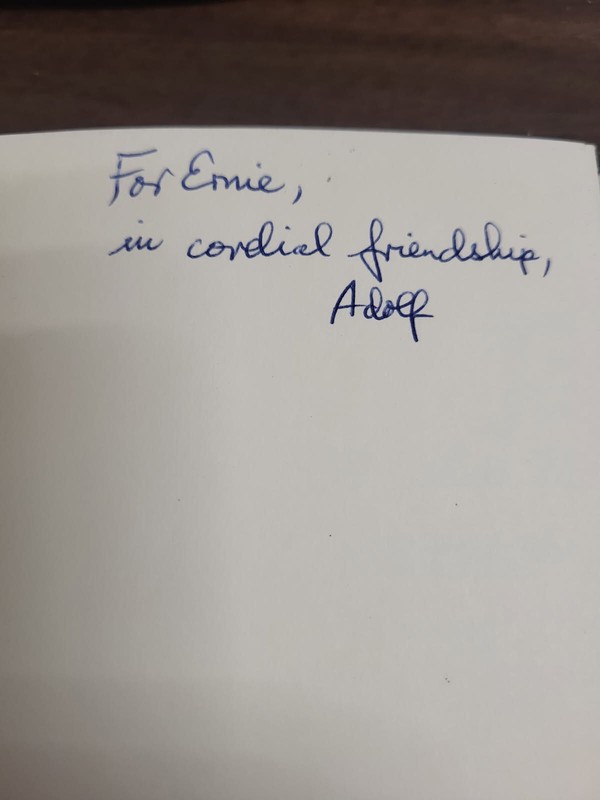 For Ernie,
in cordial friendship,
Adolf